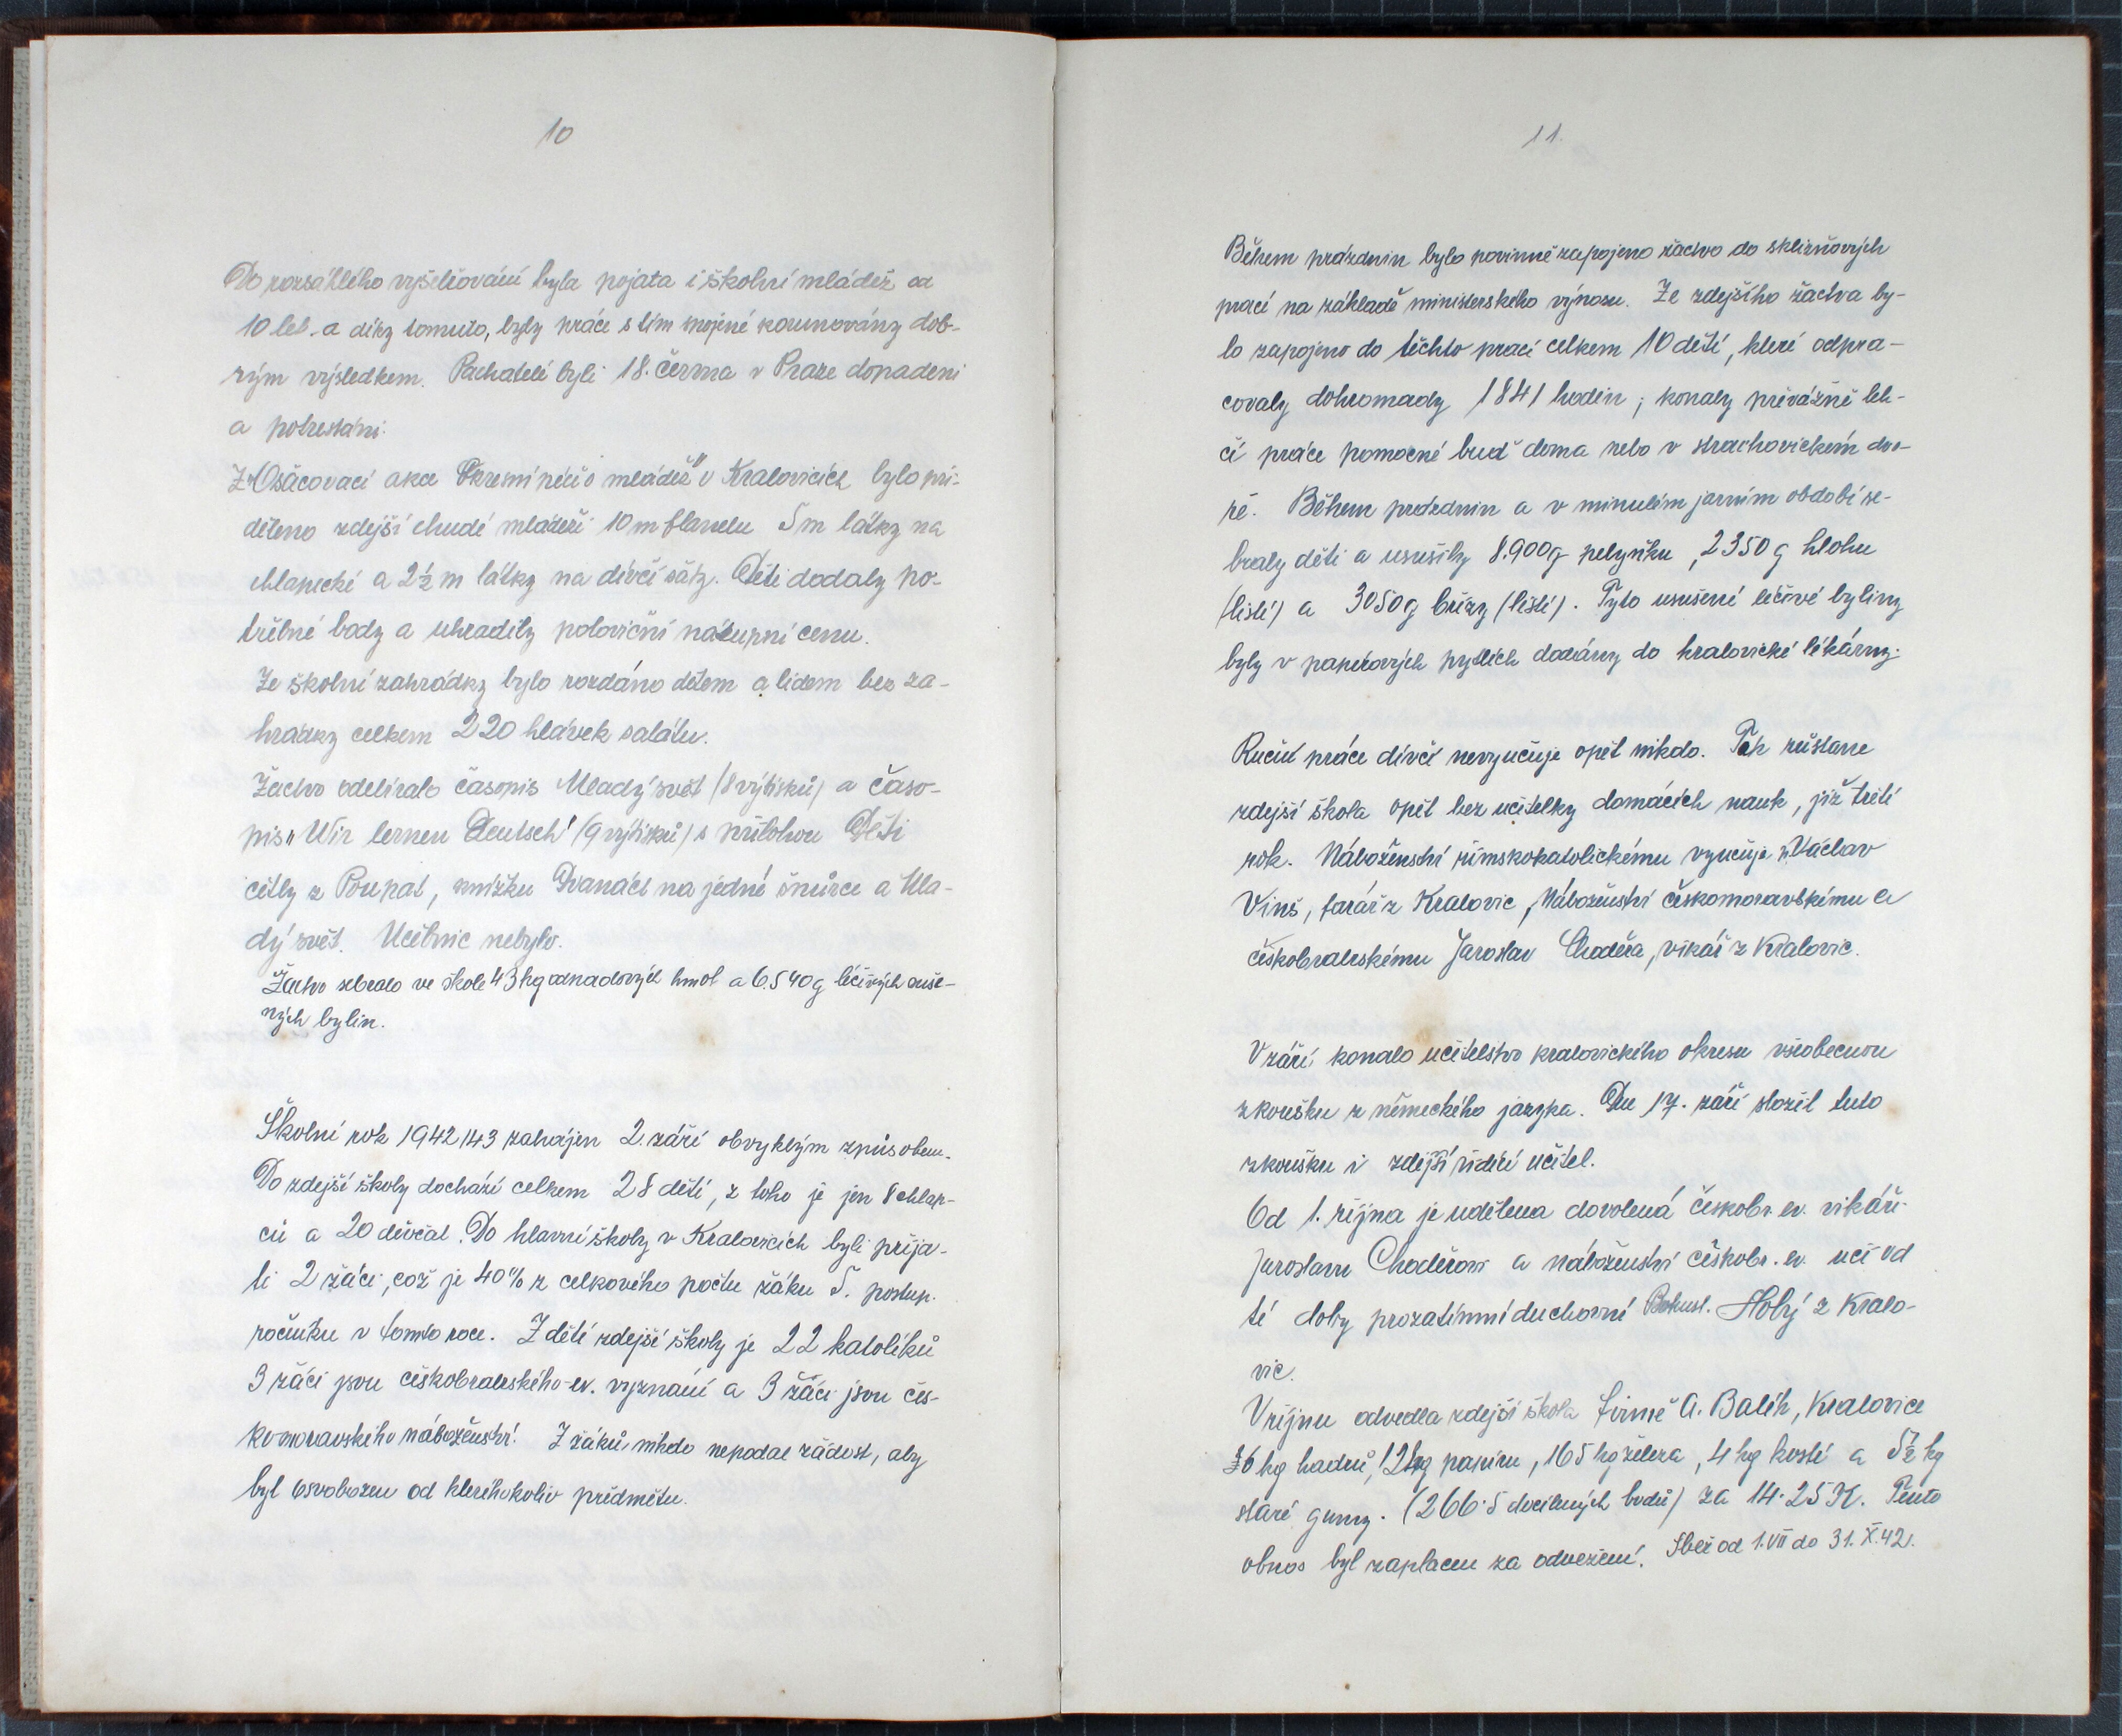 10
Do rozsáhlého vyšetřování byla pojata i školní mládež od
10 let a díky tomuto, byly práce s tím spojené korunovány dob-
rým výsledkem. Pachatelé byli 18. června v Praze dopadeni
a potrestáni.
Z "Ošacovací akce Okresní péče o mládež" v Kralovicích bylo při-
děleno zdejší chudé mládeži 10 m flanelu 5 m látky na
chlapecké a 2½ m látky na dívčí šaty. Děti dodaly po-
třebné body a uhradily poloviční nákupní cenu.
Ze školní zahrádky bylo rozdáno dětem a lidem bez za-
hrádky celkem 220 hlávek salátu.
Žactvo odebíralo časopis Mladý svět (8 výtisků) a časo-
pis „Wir lernen Deutsch" (9 výtisků) s přílohou Děti
četly z Poupat, knížku Dvanáct na jedné šňůrce a Mla-
dý svět. Učebnic nebylo.
Žactvo sebralo ve škole 43 kg odpadových hmot a 6.540 g léčivých suše-
ných bylin.
Školní rok 1942/43 zahájen 2. září obvyklým způsobem.
Do zdejší školy dochází celkem 28 dětí, z toho je jen 8 chlap-
ců a 20 děvčat. Do hlavní školy v Kralovicích byli přija-
ti 2 žáci, což je 40% z celkového počtu žáku 5. postup.
ročníku v tomto roce. Z dětí zdejší školy je 22 katolíků
3 žáci jsou českobratrského-ev. vyznání a 3 žáci jsou čes-
komoravského náboženství. Z žáků nikdo nepodal žádost, aby
byl osvobozen od kteréhokoliv předmětu.
11.
Během prázdnin bylo povinně zapojeno žactvo do sklizňových
prací na základě ministerského výnosu. Ze zdejšího žactva by-
lo zapojeno do těchto prací celkem 10 dětí, které odpra-
covaly dohromady 1841 hodin; konaly převážně leh-
čí práce pomocné buď doma nebo v strachovickém dvo-
ře. Během prázdnin a v minulém jarním období se-
braly děti a usušily 8.900 g pelyňku, 2350 g hlohu
(listí) a 3050 g břízy (listí). Tyto usušené léčivé byliny
byly v papírových pytlích dodány do kralovické lékárny.
Ruční práce dívčí nevyučuje opět nikdo. Tak zůstane
zdejší škola opět bez učitelky domácích nauk, již třetí
rok. Náboženství římskokatolickému vyučuje p. Václav
Vinš, farář z Kralovic, Náboženství českomoravskému a
českobratrskému Jaroslav Choděra, vikář z Kralovic.
V září konalo učitelstvo kralovického okresu všeobecnou
zkoušku z německého jazyka. Dne 17. září složil tuto
zkoušku i zdejší řídící učitel.
Od 1. října je udělena dovolená českobr. ev. vikáři
Jaroslavu Choděrovi a náboženství českobr. ev. učí od
té doby prozatímní duchovní Bohusl. Hobý z Kralo-
vic.
V říjnu odvedla zdejší škola firmě A. Balík, Kralovice
36 kg hadrů, 12 kg papíru, 165 kg železa, 4 kg kostí a 5½ kg
staré gumy. (266·5 docílených bodů) za 14·25 K. Tento
obnos byl zaplacen za odvezení. Sběr od 1. VII do 31. X. 42.